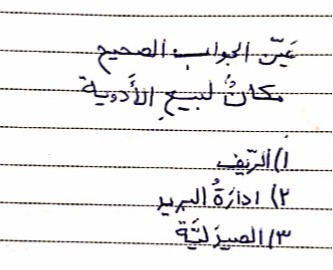 عَيّن الجواب الصحيح
مكانٌ لبيعِ الأَدوية
١) الرّيف
٢) ادارَةُ البريد
٣) الصيدَليَّة